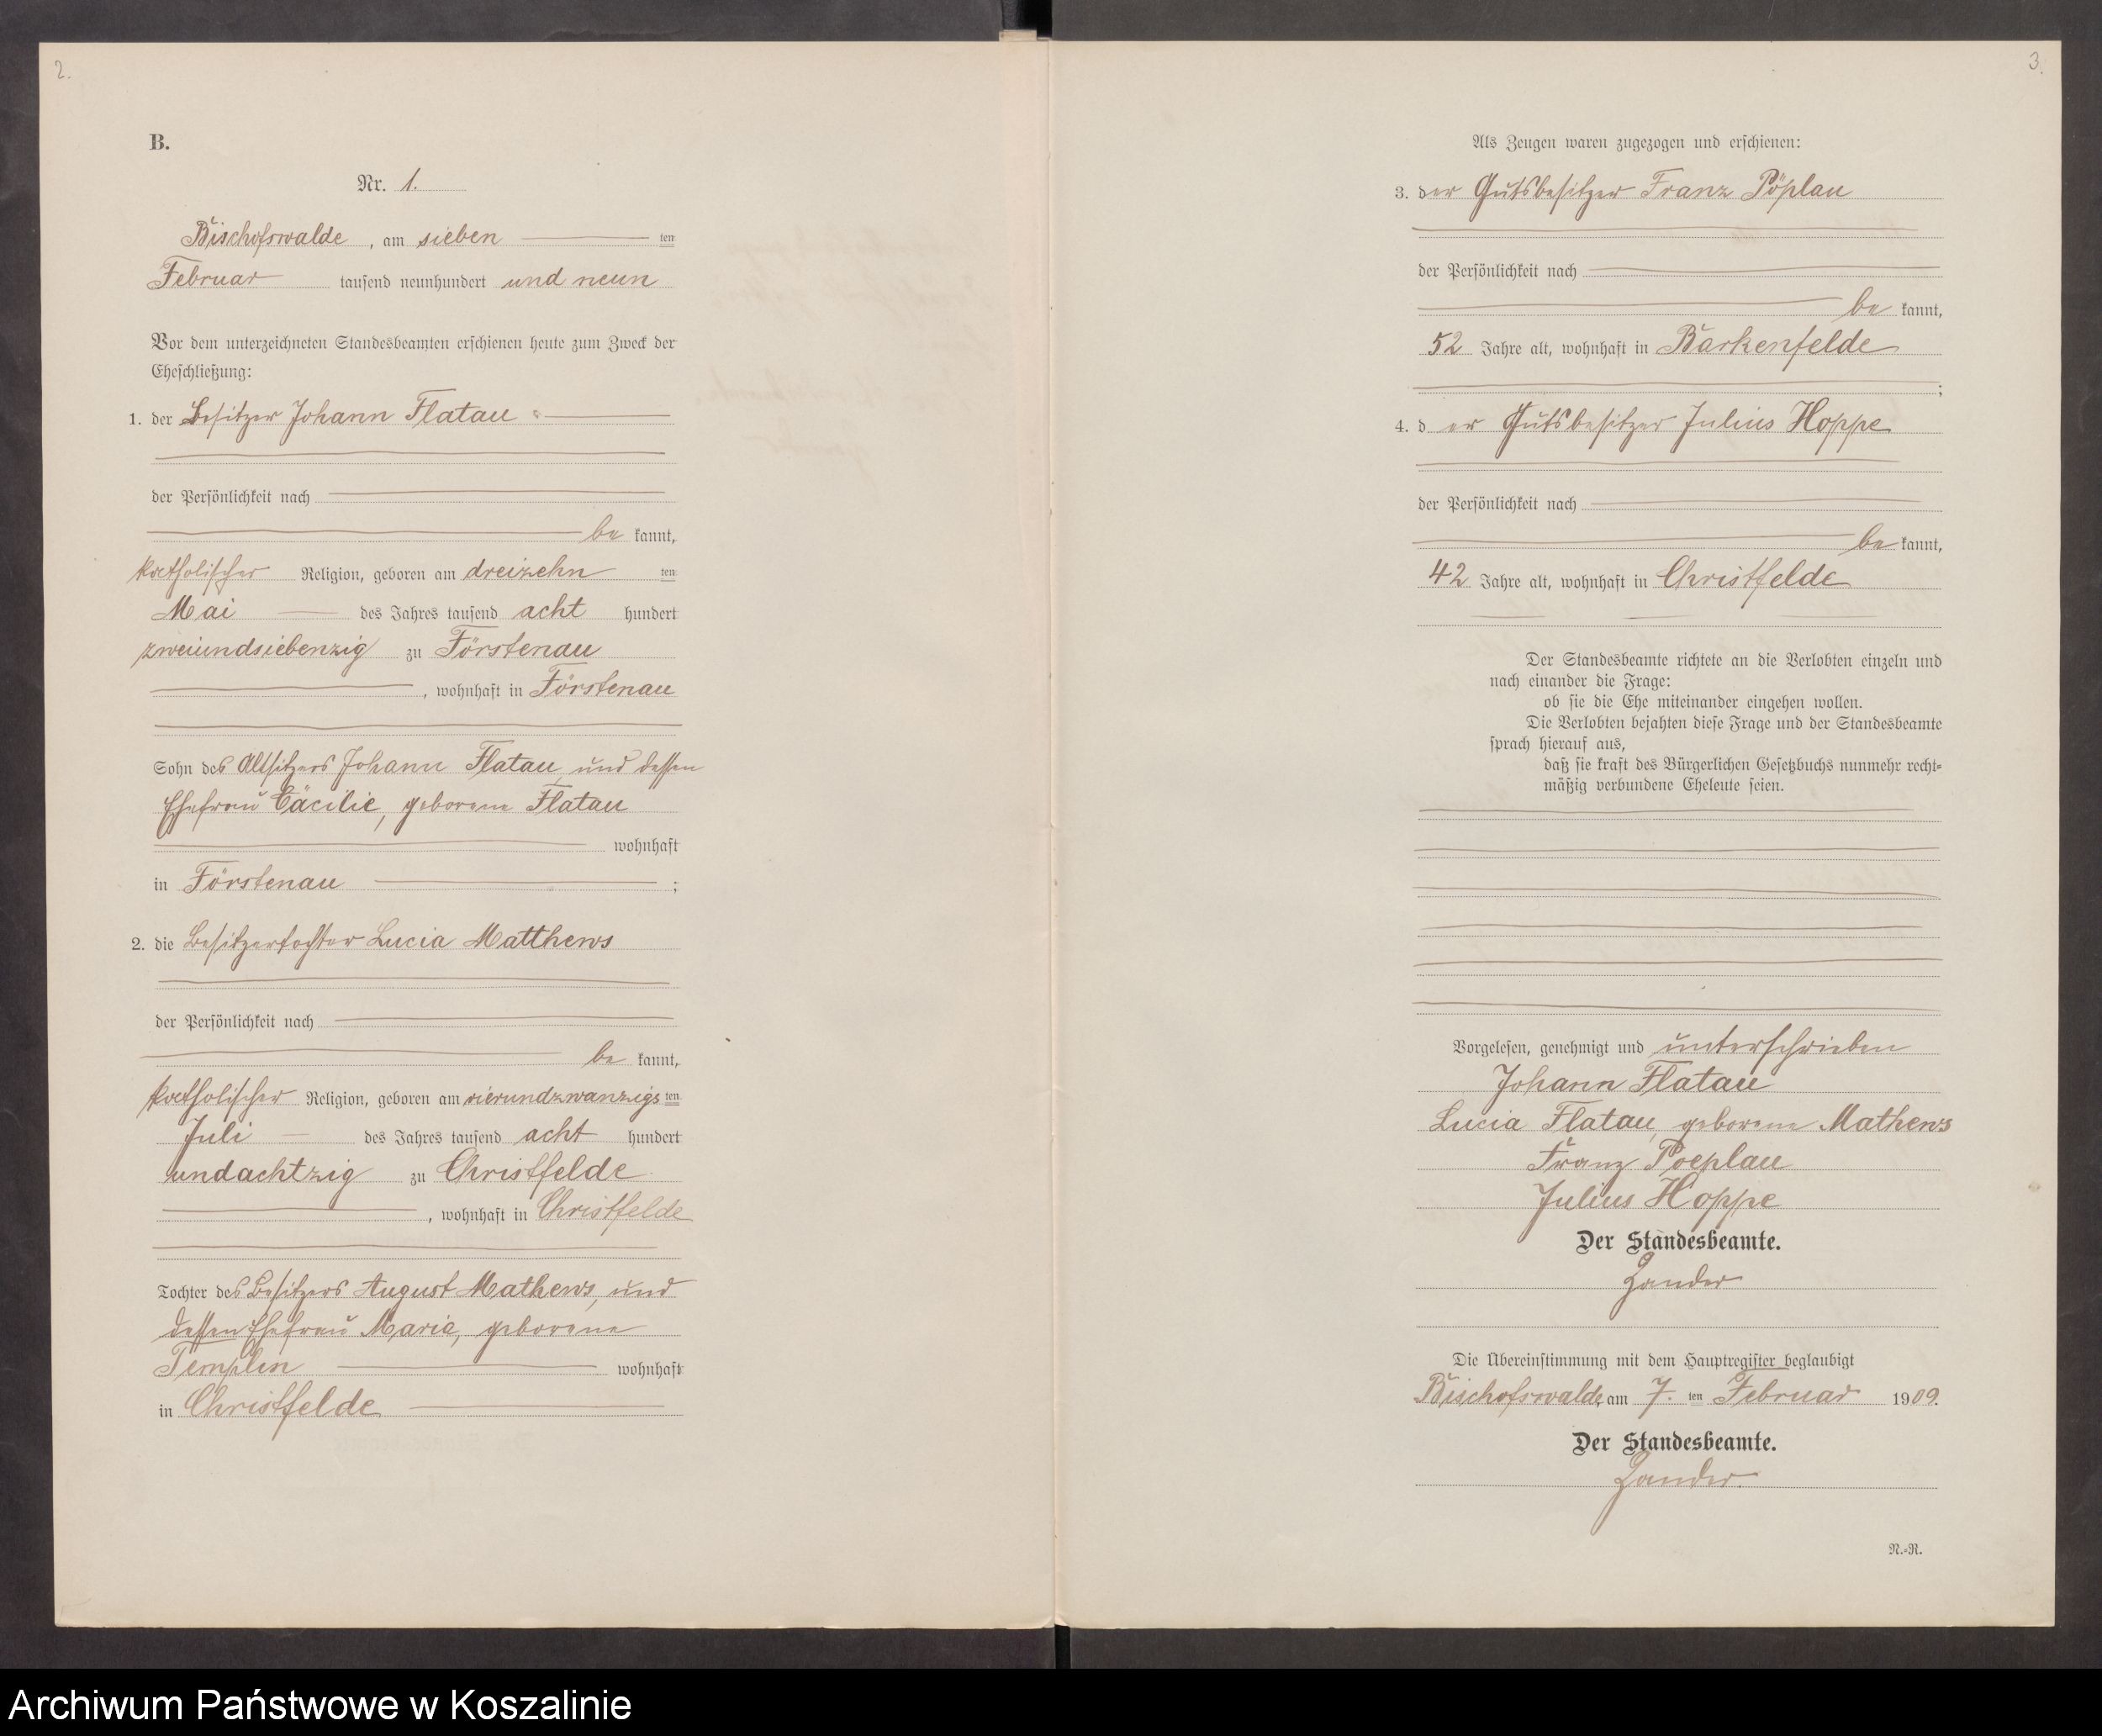 2.
B.
Nr. 1.
Bischofswalde, am sieben ten
Februar tausend neunhundert und neun
Vor dem unterzeichneten Standesbeamten erschienen heute zum Zweck der
Eheschließung:
1. der Besitzer Johann Flatau
der Persönlichkeit nach
be kannt,
katholischer Religion, geboren am dreizehn ten
Mai des Jahres tausend acht hundert
zweiundsiebenzig zu Förstenau
, wohnhaft in Förstenau
Sohn des Altsitzers Johann Flatau, und dessen
Ehefrau Cäcilie, geborene Flatau
wohnhaft
in Förstenau ;
2. die Besitzertochter Lucia Matthews
der Persönlichkeit nach
be kannt,
katholischer Religion, geboren am vierundzwanzigs ten
Juli des Jahres tausend acht hundert
undachtzig zu Christfelde
, wohnhaft in Christfelde
Tochter des Besitzers August Mathews, und
dessen Ehefrau Maria, geborene
Templin wohnhaft
in Christfelde
3.
Als Zeugen waren zugezogen und erschienen:
3. der Gutsbesitzer Franz Pöplau
der Persönlichkeit nach
be kannt,
52 Jahre alt, wohnhaft in Barkenfelde
;
4. d er Gutsbesitzer Julius Hoppe
der Persönlichkeit nach
be kannt,
42 Jahre alt, wohnhaft in Christfelde
Der Standesbeamte richtete an die Verlobten einzeln und
nach einander die Frage:
ob sie die Ehe miteinander eingehen wollen.
Die Verlobten bejahten diese Frage und der Standesbeamte
sprach hierauf aus,
daß sie kraft des Bürgerlichen Gesetzbuchs nunmehr recht-
mäßig verbundene Eheleute seien.
Vorgelesen, genehmigt und unterschrieben
Johann Flatau
Lucia Flatau, geborene Mathews
Franz Poeplau
Julius Hoppe
Der Standesbeamte.
Zander
Die Übereinstimmung mit dem Hauptregister beglaubigt
Bischofswalde, am 7. ten Februar 1909.
Der Standesbeamte.
Zander.
N.-R.
Archiwum Państwowe w Koszalinie